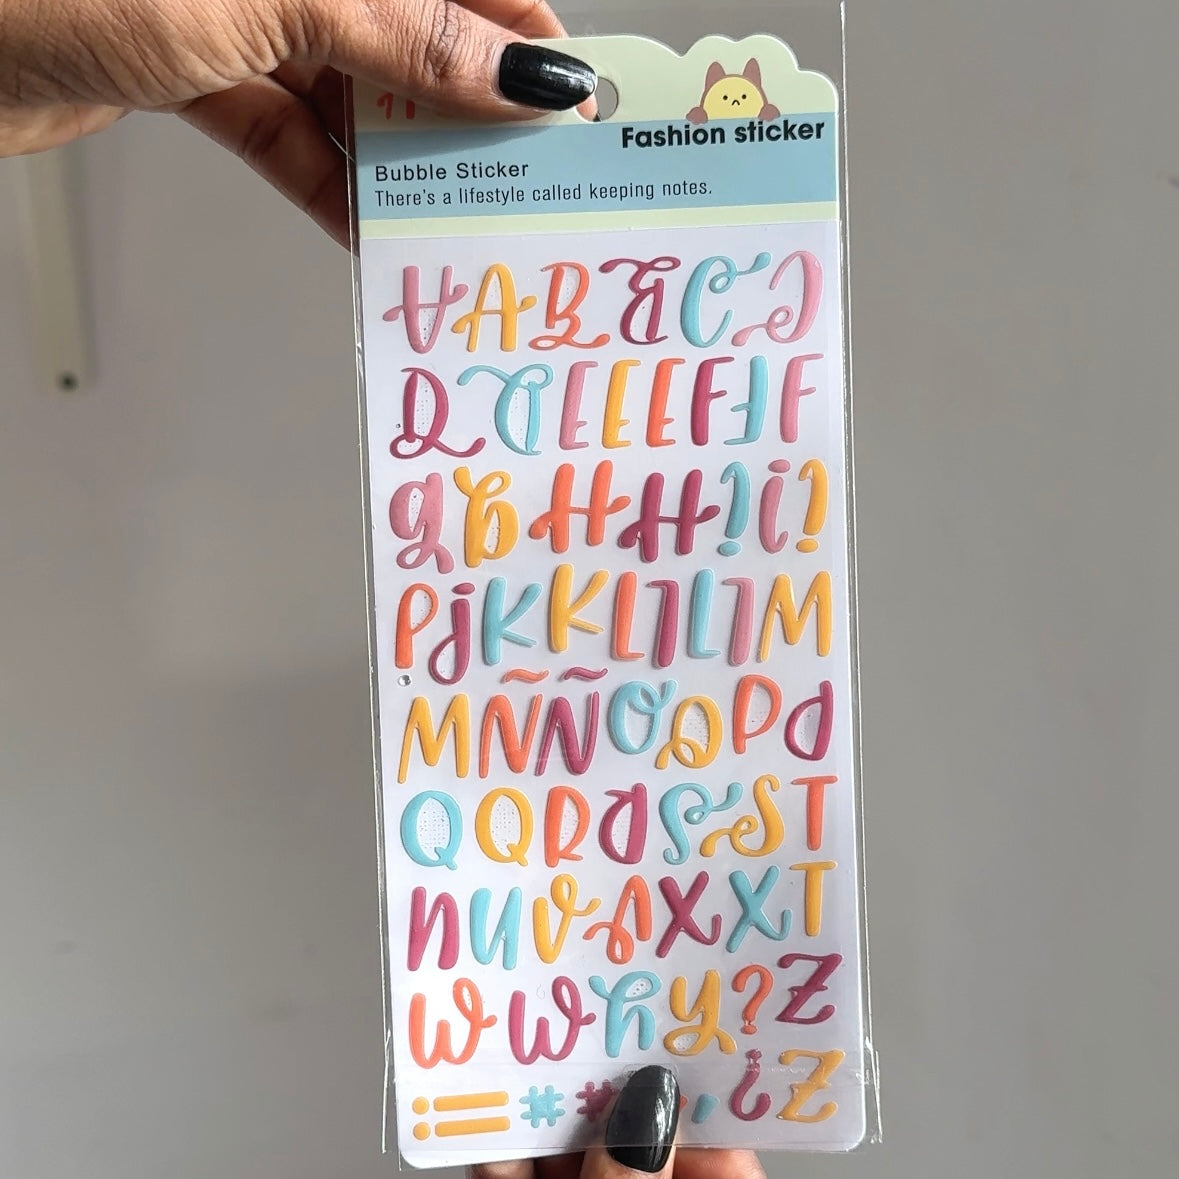 Fashion sticker
Bubble Sticker
There's a lifestyle called keeping notes.
A A B B C C
D D E E E F F F
g g H H ! i !
P j K K L L L L M
M Ñ Ñ O O P P
Q Q R R S S T
n u V V X X T
W W h y ? Z
# # , ? Z